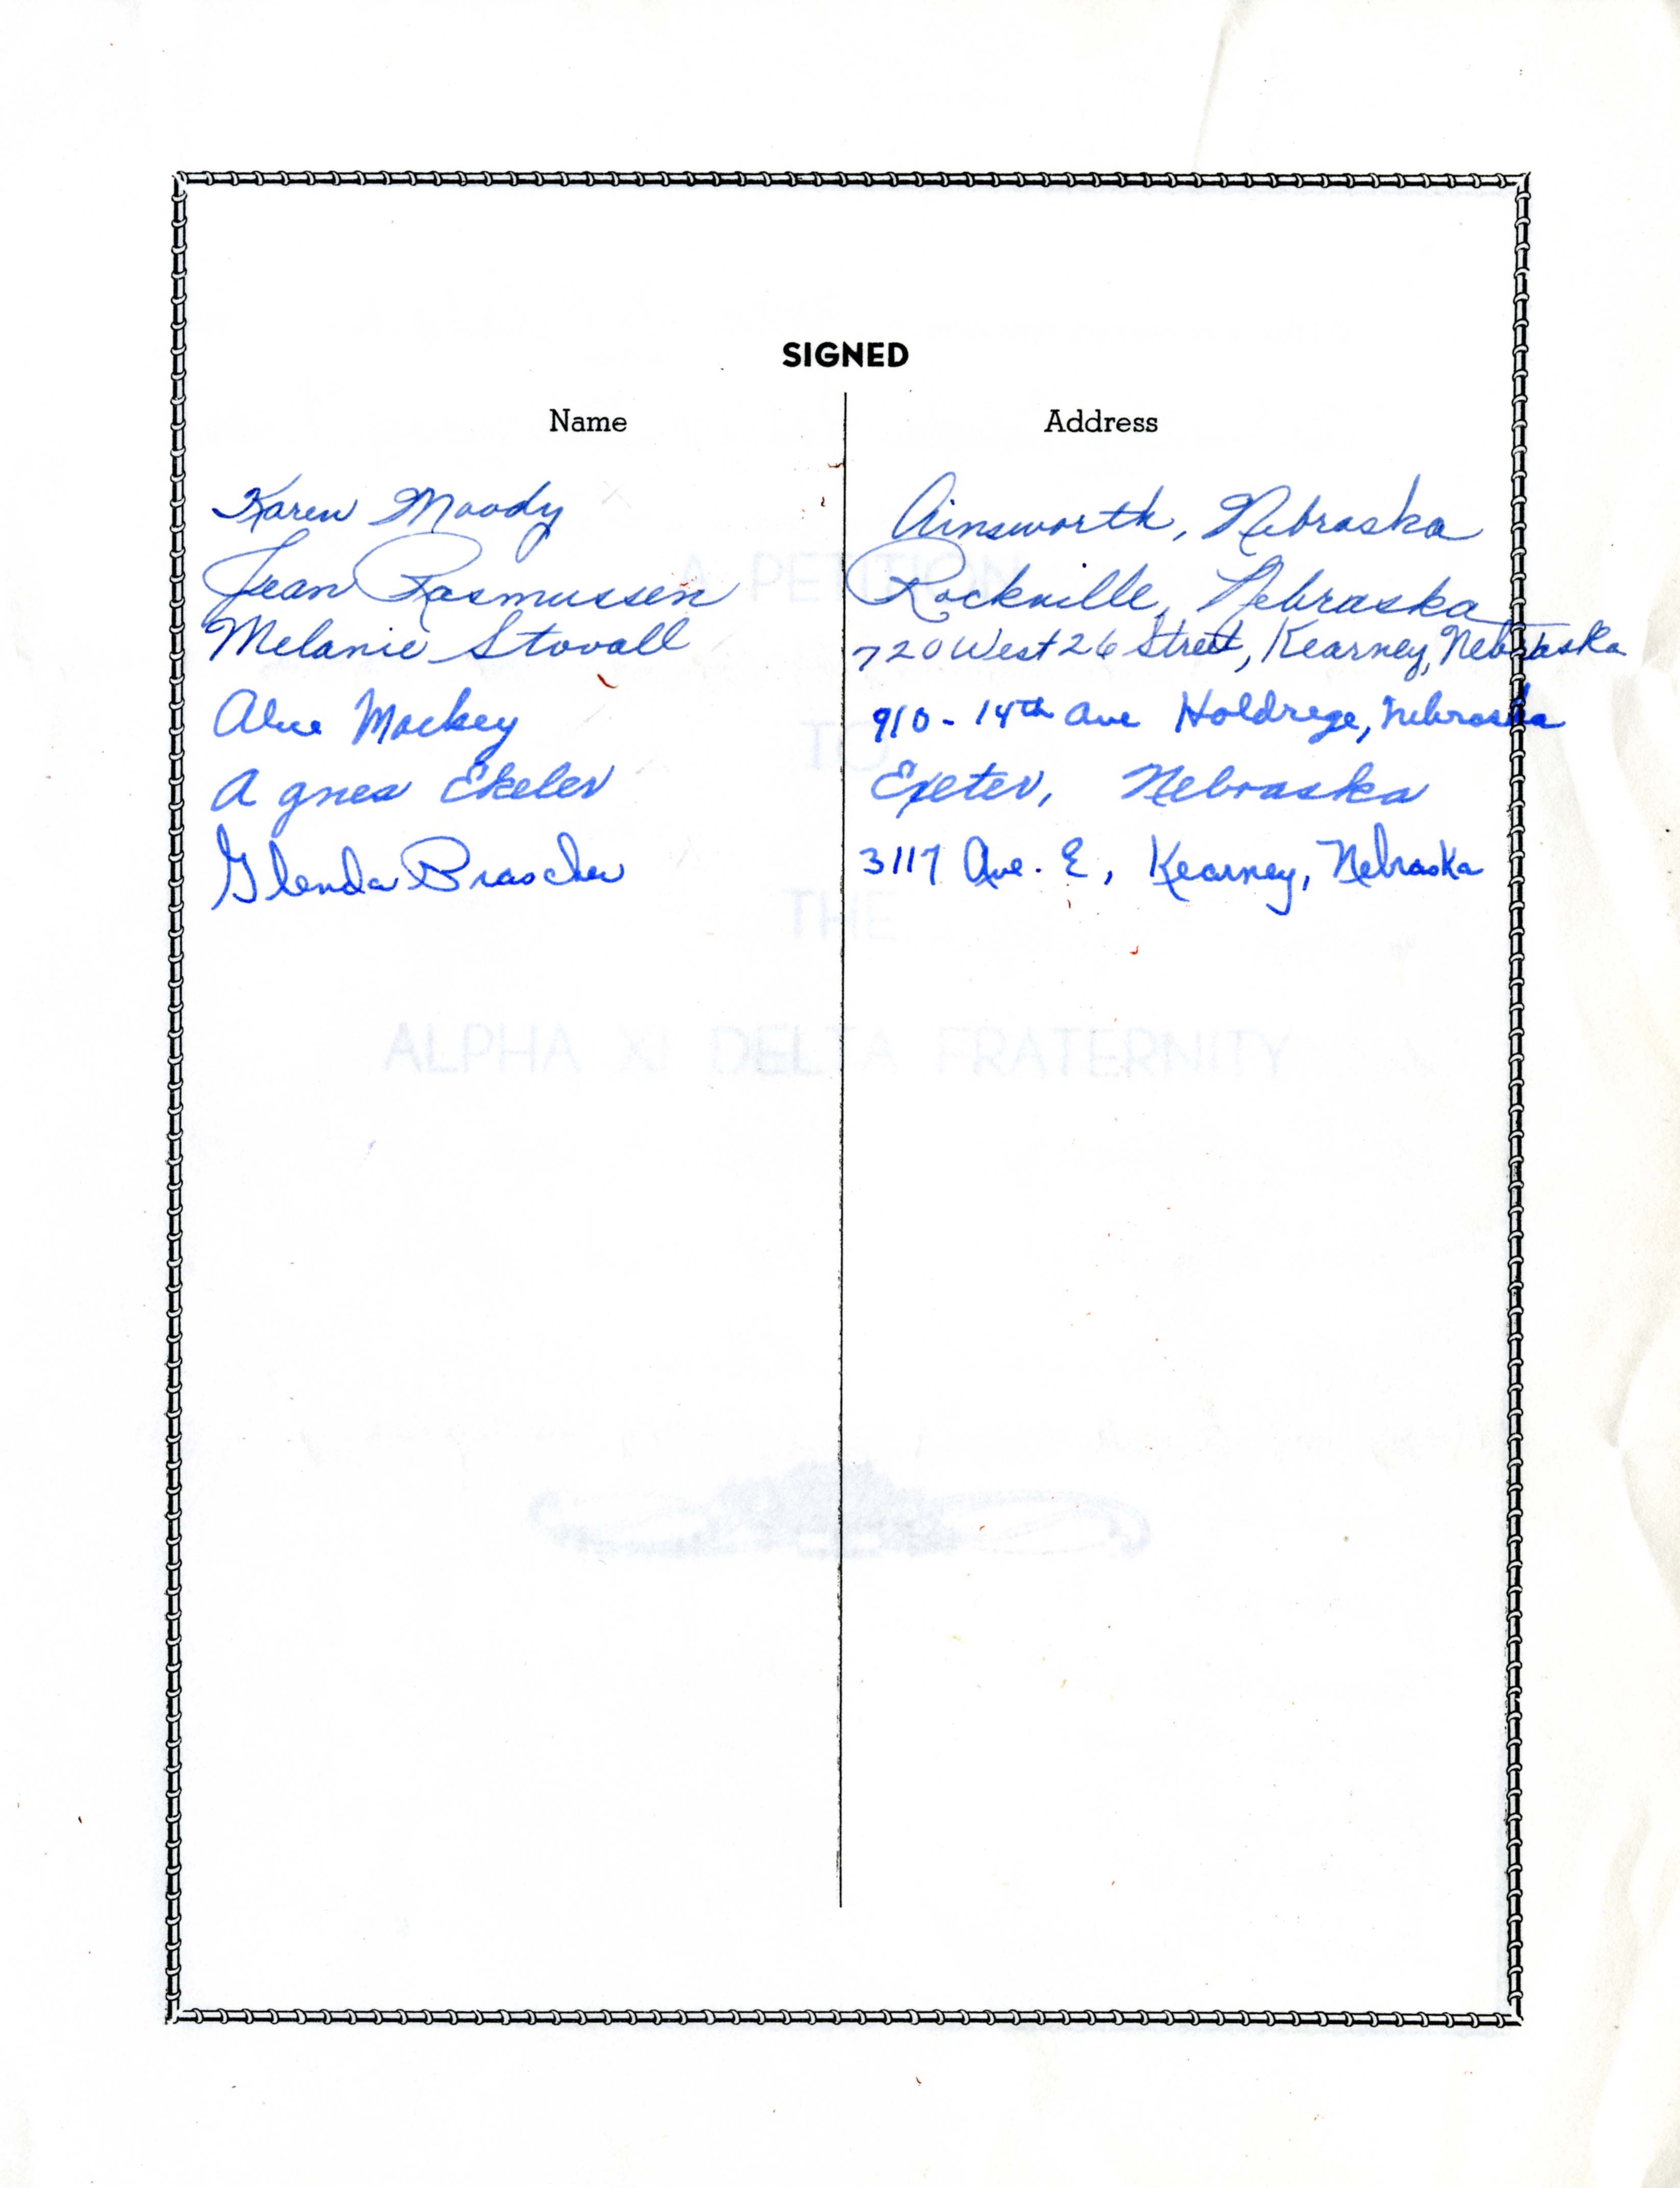 SIGNED
Name Address
Karen Moody Ainsworth, Nebraska
Jean Rasmussen Rockville, Nebraska
Melanie Stovall 720 West 26 Street, Kearney, Nebraska
Alice Mackey 910 - 14th Ave Holdrege, Nebraska
Agnes Ekeler Exeter, Nebraska
Glenda Brascher 3117 Ave. E, Kearney, Nebraska
A PETITION
TO
THE
ALPHA XI DELTA FRATERNITY